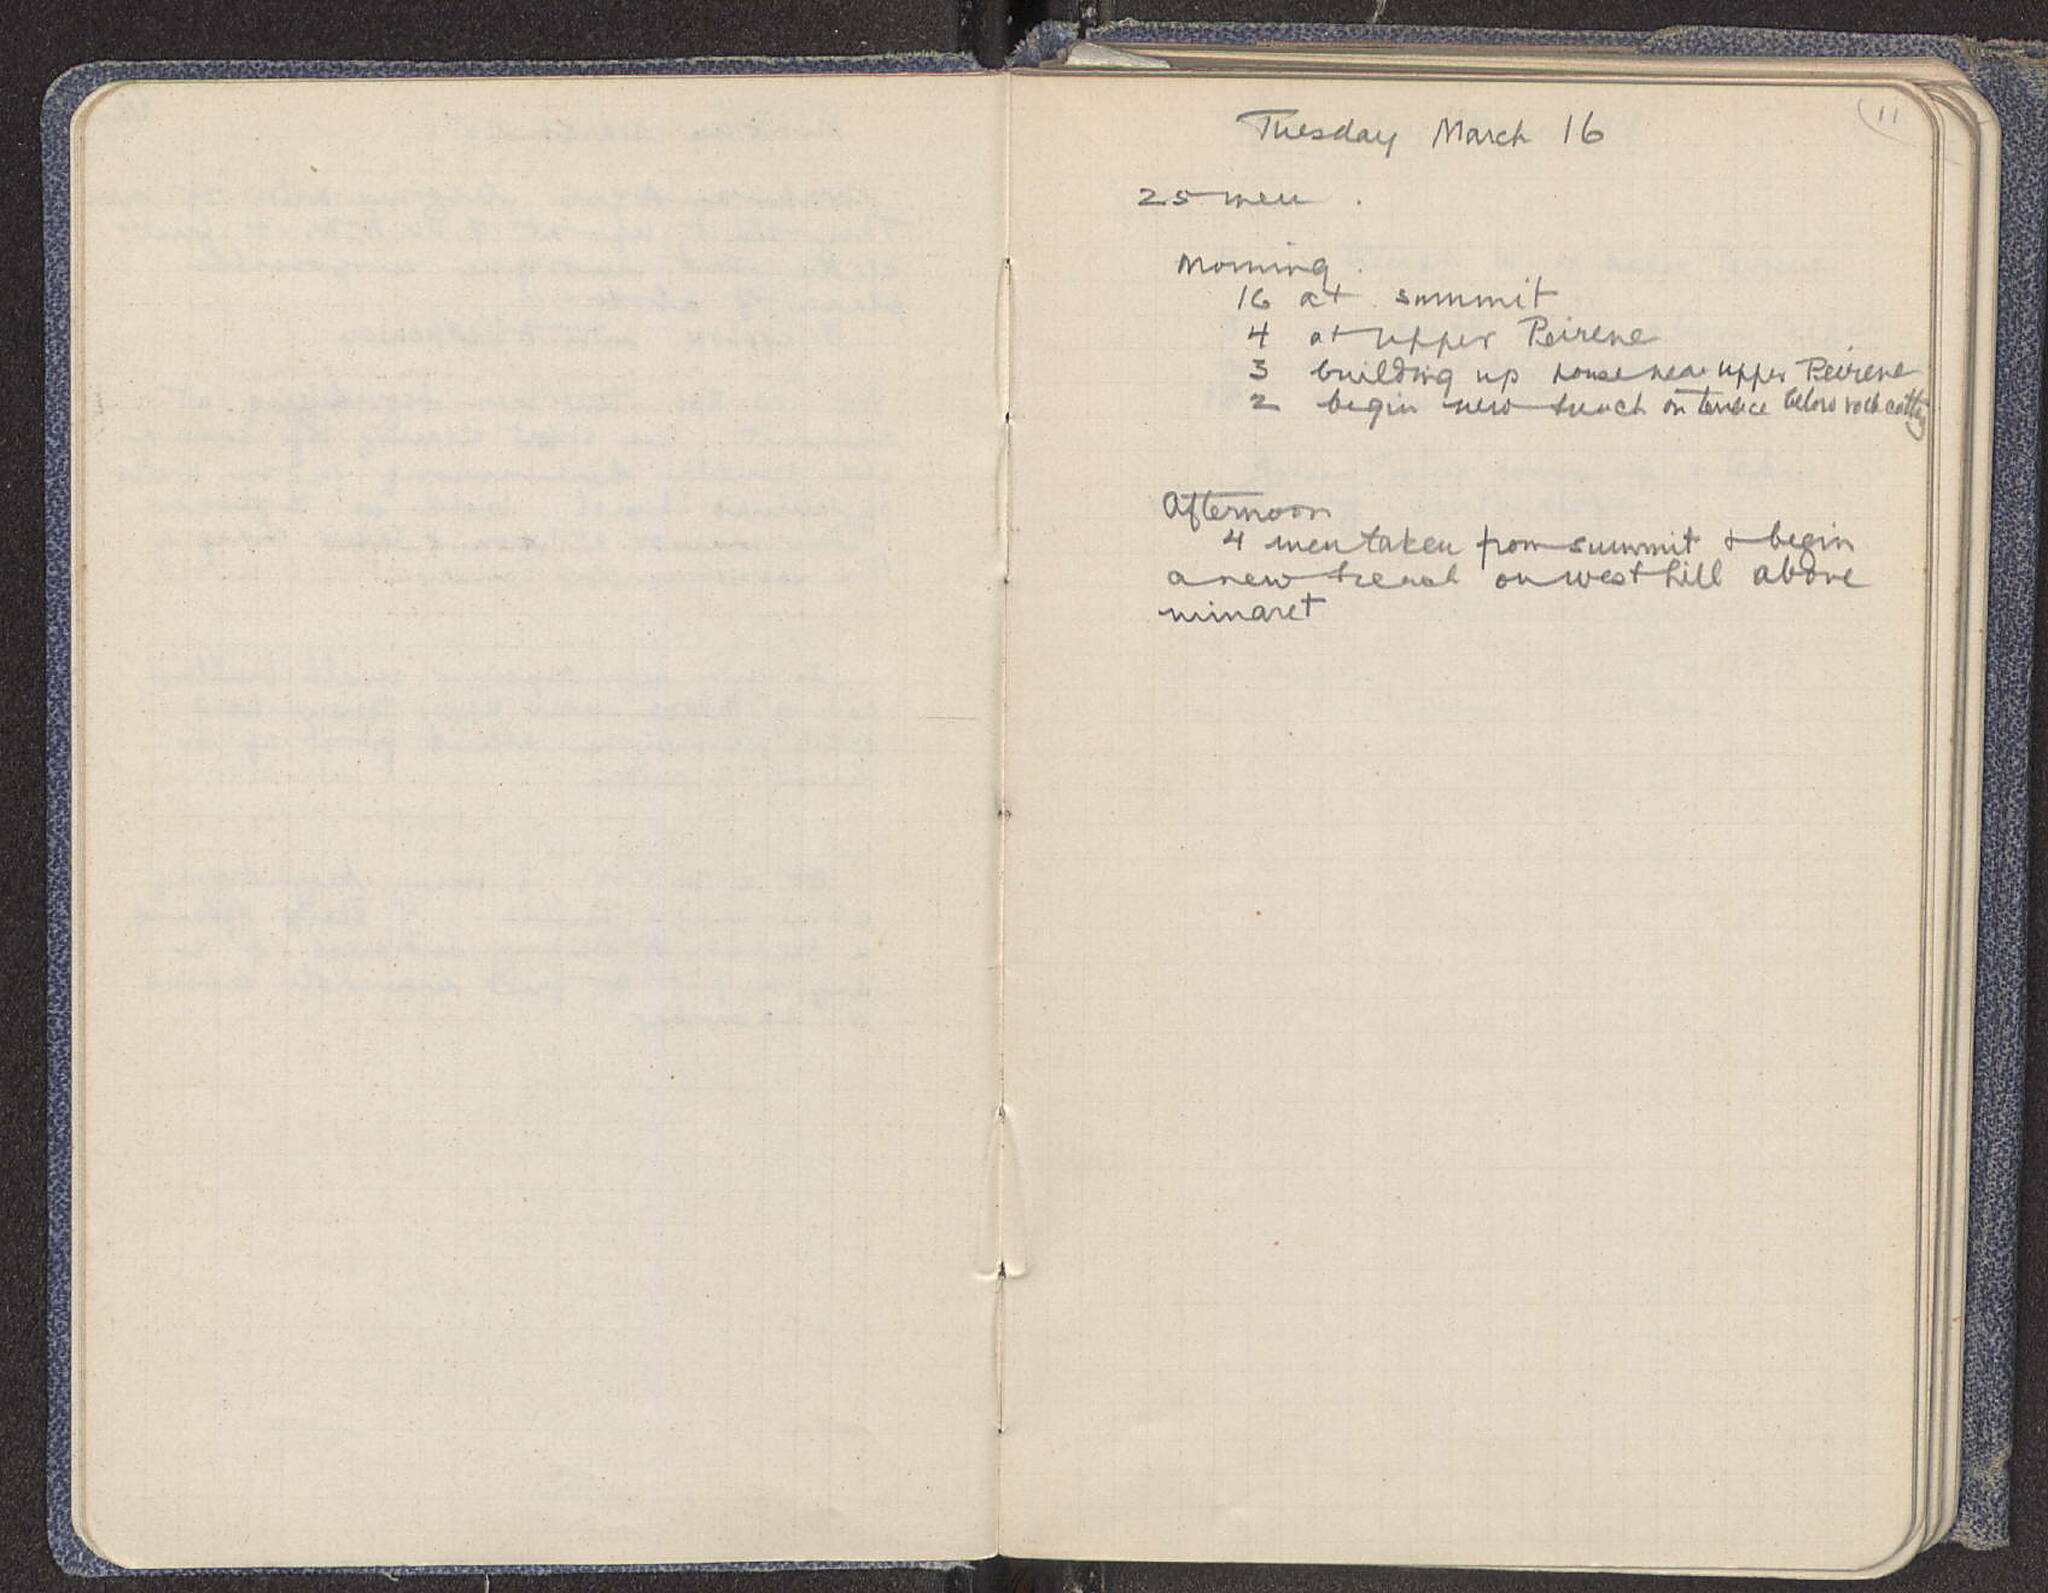 11
Tuesday March 16
25 men.
Morning.
16 at summit
4 at upper Peirene
3 building up house near upper Peirene
2 begin new trench on terrace below rock cutting
Afternoon
4 men taken from summit & begin
a new trench on west hill above
minaret